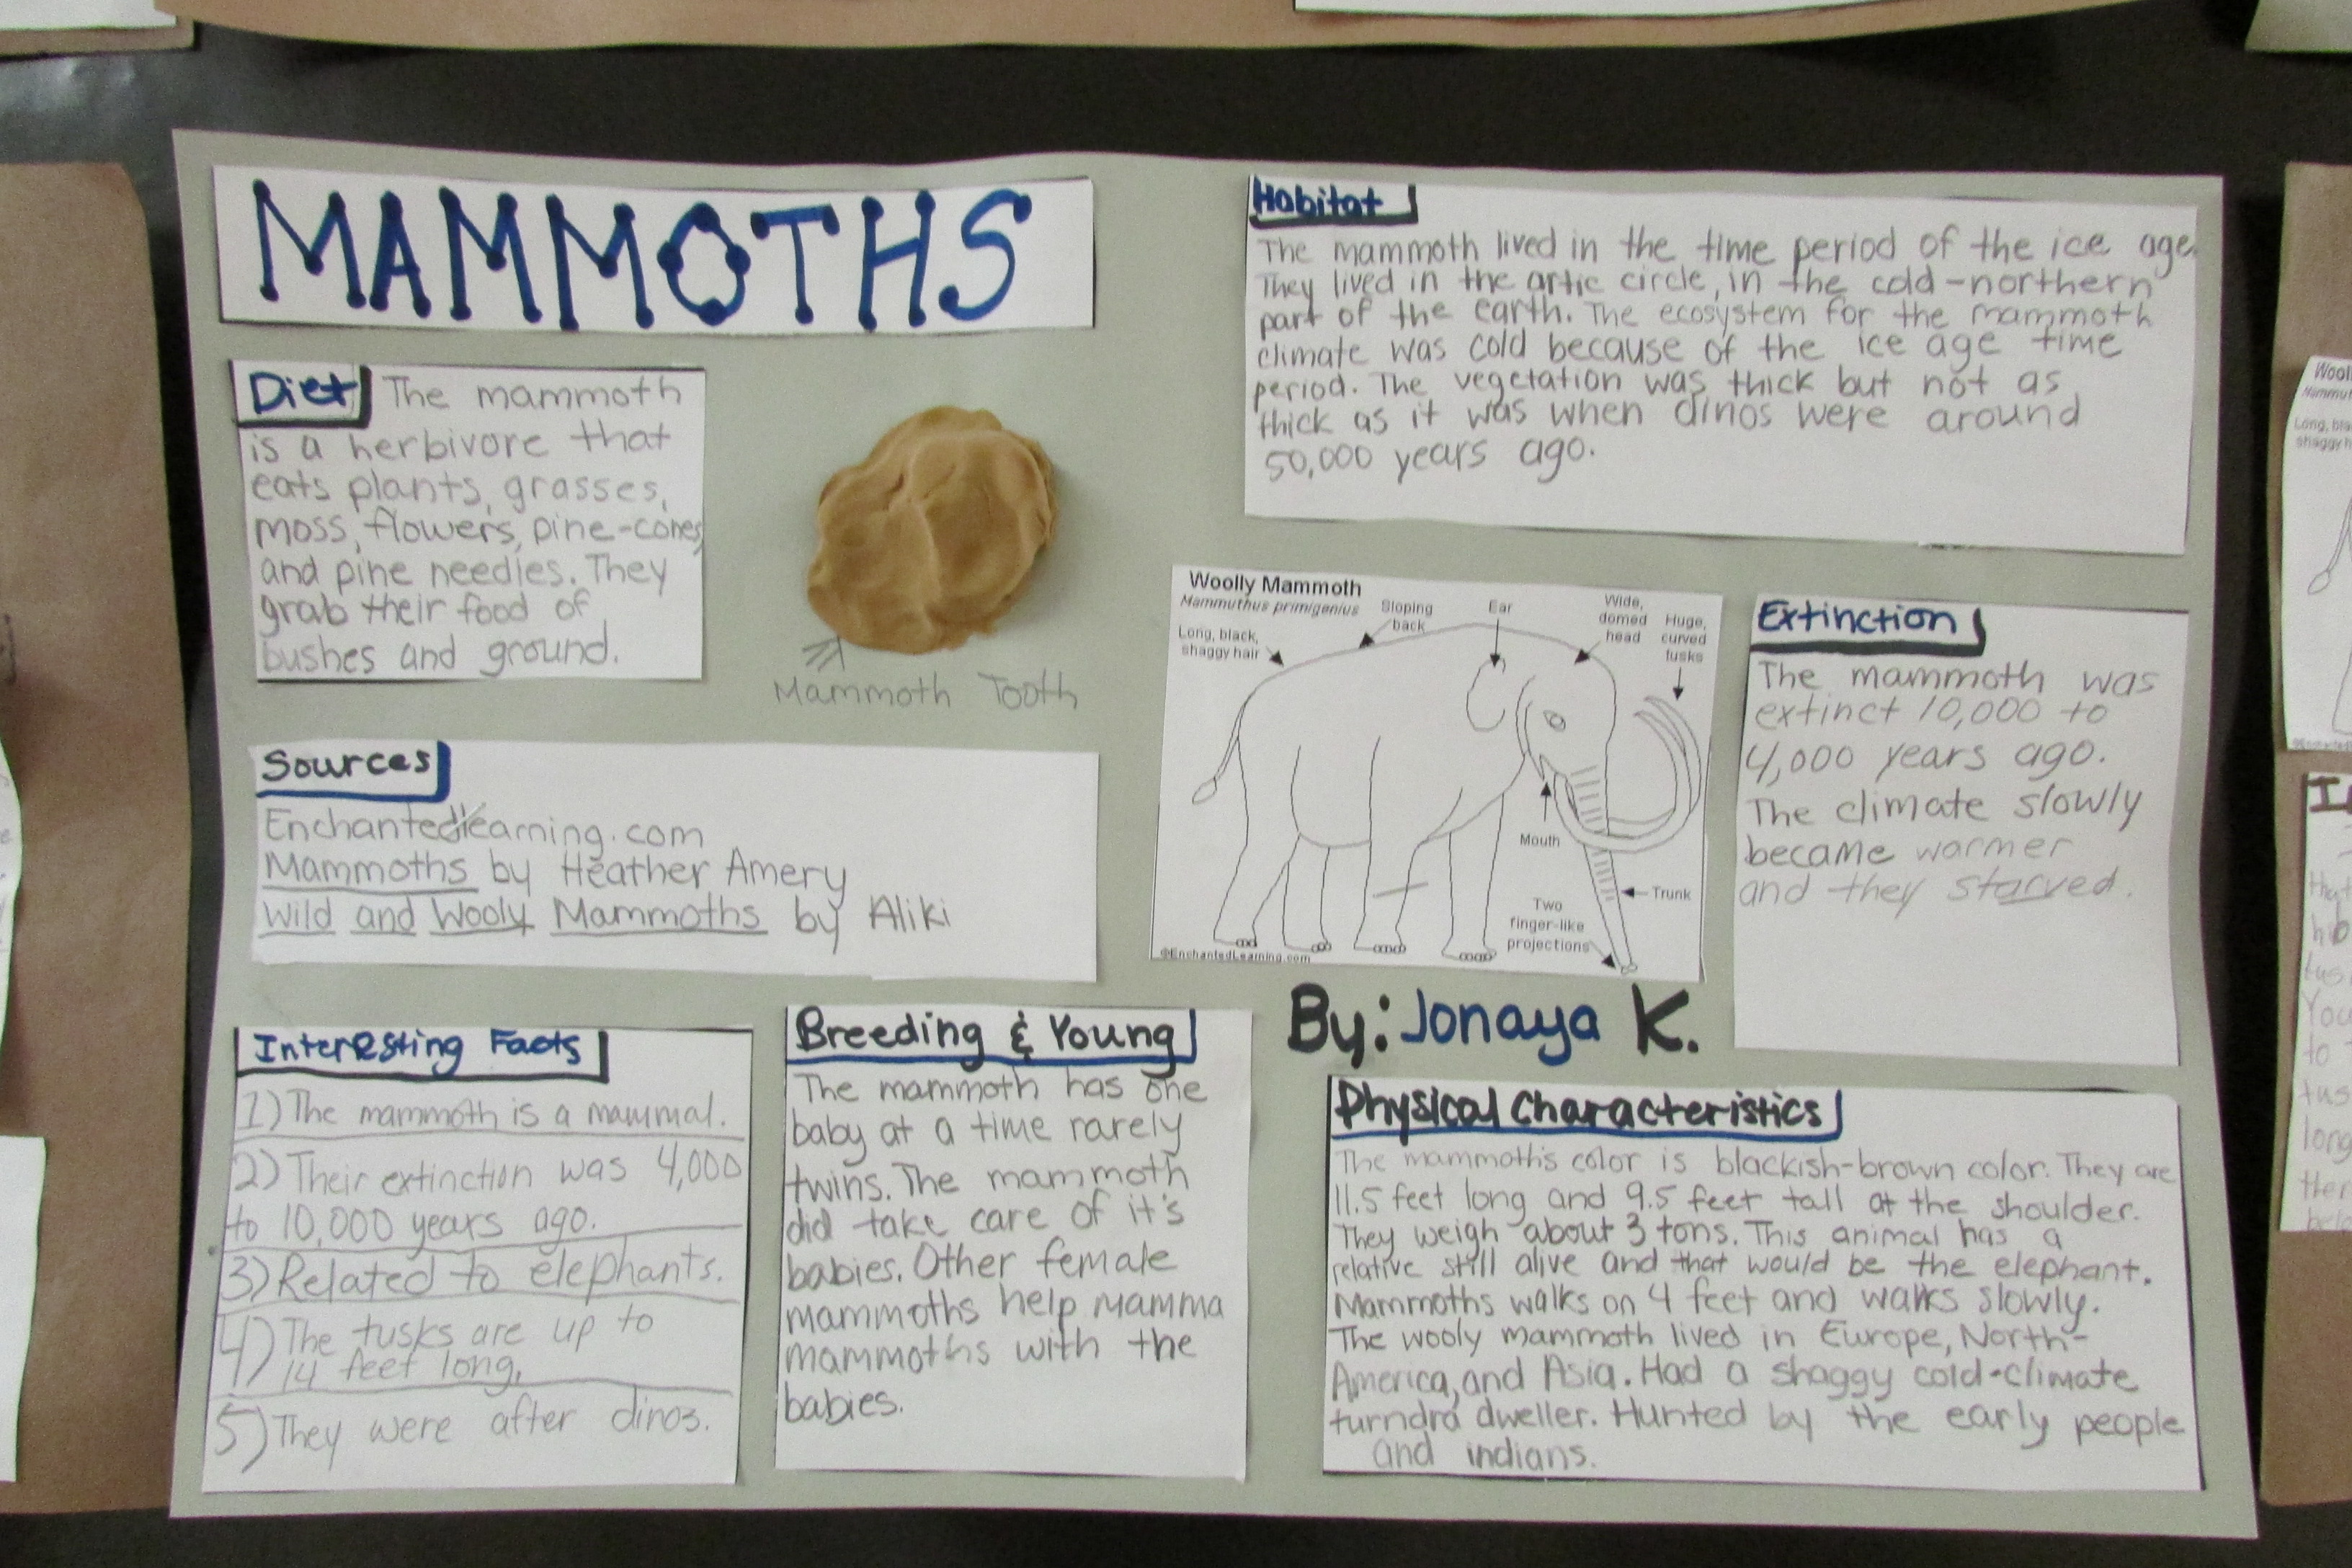 MAMMOTHS
Diet The mammoth
is a herbivore that
eats plants, grasses,
moss, flowers, pine-cones,
and pine needles. They
grab their food of
bushes and ground.
Mammoth Tooth
Sources
Enchantedlearning.com
Mammoths by Heather Amery
Wild and Wooly Mammoths by Aliki
Interesting Facts
1) The mammoth is a mammal.
2) Their extinction was 4,000
to 10,000 years ago.
3) Related to elephants.
4) The tusks are up to
14 feet long.
5) They were after dinos.
Breeding & Young
The mammoth has one
baby at a time rarely
twins. The mammoth
did take care of it's
babies. Other female
mammoths help mamma
mammoths with the
babies.
Habitat
The mammoth lived in the time period of the ice age.
They lived in the artic circle, in the cold-northern
part of the earth. The ecosystem for the mammoth
climate was cold because of the ice age time
period. The vegetation was thick but not as
thick as it was when dinos were around
50,000 years ago.
Woolly Mammoth
Mammuthus primigenius
Long, black,
shaggy hair
Sloping
back
Ear
Wide,
domed
head
Huge,
curved
tusks
Mouth
Trunk
Two
finger-like
projections
©EnchantedLearning.com
Extinction
The mammoth was
extinct 10,000 to
4,000 years ago.
The climate slowly
became warmer
and they starved.
By: Jonaya K.
Physical Characteristics
The mammoth's color is blackish-brown color. They are
11.5 feet long and 9.5 feet tall at the shoulder.
They weigh about 3 tons. This animal has a
relative still alive and that would be the elephant.
Mammoths walks on 4 feet and walks slowly.
The wooly mammoth lived in Europe, North-
America, and Asia. Had a shaggy cold-climate
turndra dweller. Hunted by the early people
and indians.